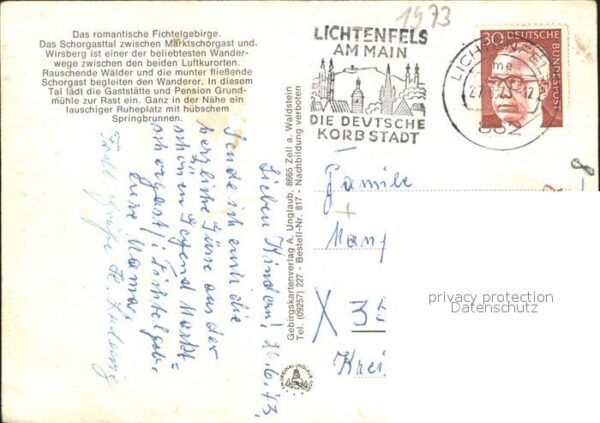 1973
Das romantische Fichtelgebirge.
Das Schorgasttal zwischen Marktschorgast und
Wirsberg ist einer der beliebtesten Wander-
wege zwischen den beiden Luftkurorten.
Rauschende Wälder und die munter fließende
Schorgast begleiten den Wanderer. In diesem
Tal lädt die Gaststätte und Pension Grund-
mühle zur Rast ein. Ganz in der Nähe ein
lauschiger Ruheplatz mit hübschem
Springbrunnen.
LICHTENFELS
AM MAIN
DIE DEUTSCHE
KORBSTADT
30
DEUTSCHE
BUNDESPOST
LICHTENFELS
862
Gebirgskartenverlag A. Unglaub, 8665 Zell a. Waldstein
Tel. (09257) 227 - Bestell-Nr. 817 - Nachbildung verboten
Lieben Kinder! 26.6.73,
Sende ich euch die
herzliche Grüse aus der
schönen Gegend Markt=
schorgast/Fichtelgeb.
eure Mama
Familie
+
X 35
Krei
privacy protection
Datenschutz